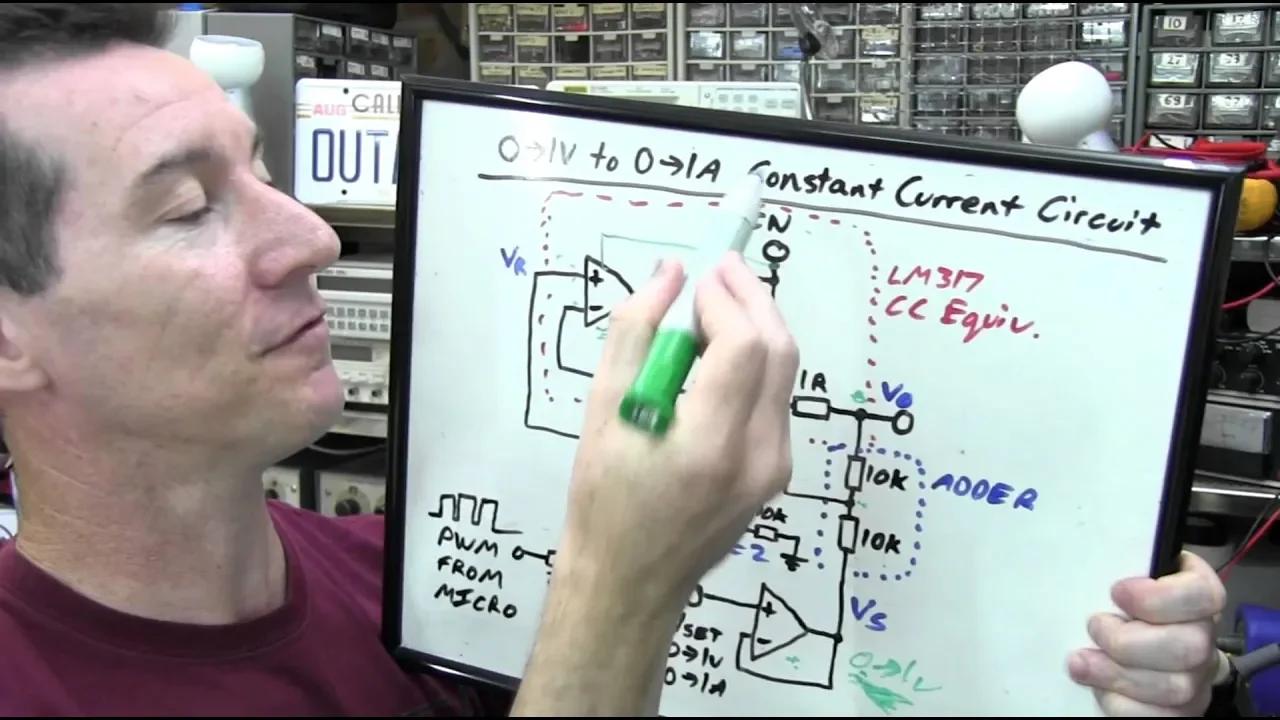 AUG CALI
OUTA
0→1V to 0→1A Constant Current Circuit
IN
VR
+
-
LM317
CC Equiv.
1R
VO
10K
ADDER
10K
10K
=2
PWM
FROM
MICRO
+
-
VS
VSET
0→1V
0→1A
0→1V
10
27
53
69